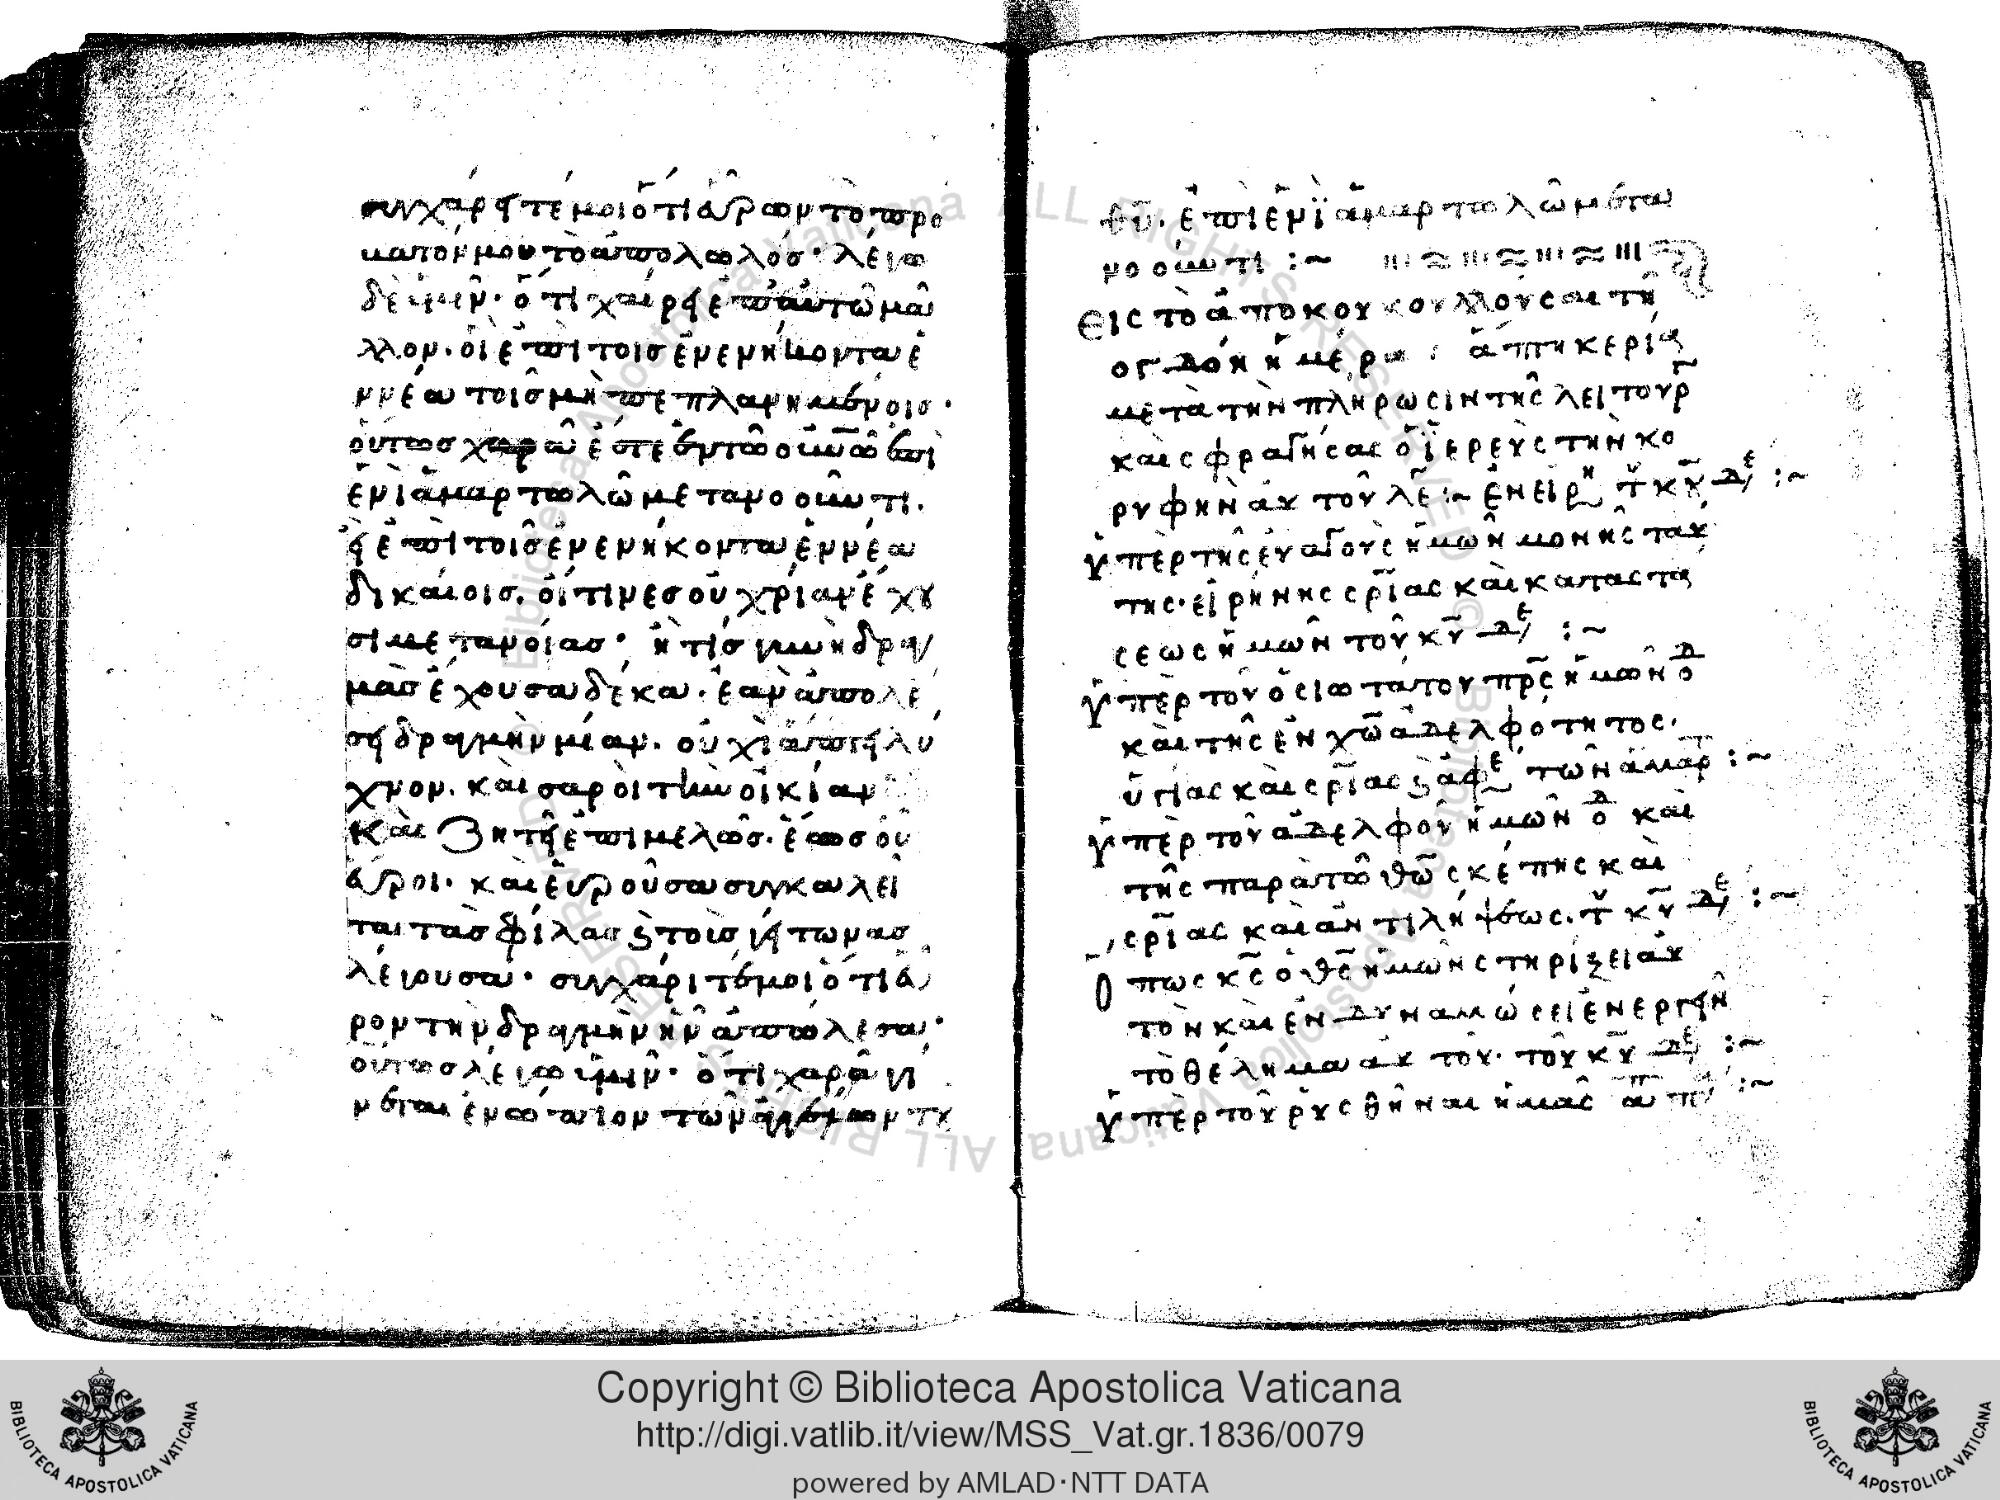 συγχάρητέ μοι ὅτι εὗρων τὸ προ
βατόν μου τὸ ἀπολωλός· λέγω
δὲ ὑμῖν· ὅτι χαίρη ἐπ' αὐτῶ μᾶ
λλον· οἱ ἐπὶ τοισ ἐνενήκοντα ἐ
ννέα τοῖσ μὴ πεπλανημένοισ·
ὁύτωσ χαρᾶ ἔστε ἐν τῶ οὐνῶ ἐπὶ
ἑνὶ ἁμαρτωλῶ μετανοοῦντι.
ἢ ἐπὶ τοῖσ ἐνενήκοντα ἐννέα
δικαίοισ. οἵτινεσ οὐ χρίαν ἔχου
σι μετανοίασ· ἢ τίσ γυνὴ δρα
μὰσ ἔχουσα δέκα· ἐαν ἀπολέ
ση δραγμὴν μίαν. οὐχὶ ἅπτη λύ
χνον. καὶ σαροὶ τὴν οἰκίαν
καὶ ζητῆ ἐπιμελῶσ. ἕωσ οὗ
εὕροι· καὶ εὑροῦσα συγκαλεῖ
ται τὰσ φίλασ καὶ τοὶσ γήτωνασ
λέγουσα· συγχάριτέ μοι ὅτι εὗ
ρον τὴν δραγμὴν ἣν ἀπώλεσα·
ὁύτωσ λέγω ὑμῖν· ὅτι χαρᾶ γί
νεται ἐνώπιον τῶν ἀγγέλων τοῦ
θῦ. ἐπὶ ἑνῒ ἁμαρτωλῶ μετα
νοοῦντι :~
Εις τὸ ἀποκουκουλλούσαι τῆ
ογδόη ἡμέρα : ἀπηκερία
μετὰ τὴν πλήρωσιν τῆς λειτουργ
καὶ σφραγήσας ὁ ϊερεὺς τὴν κο
ρυφὴν αὐτοῦ λέ :~ Ἐν εἰρη τοῦ κυ δε :~
Ὑπὲρ τῆς ἐυαγοὺς ἡμῶν μονῆς ταύ
της· εἰρήνης σρίας καὶ καταστά
σεως ἡμῶν τοῦ κυ δε :~
Ὑπὲρ τοῦ ὁσιωτάτου πρς ἡμῶν ὁδ
καὶ τῆς ἐν χῶ ἀδελφότητος·
ὑγίας καὶ σρίας καὶ ἀφε τῶν ἁμαρτ :~
Ὑπὲρ τοῦ ἀδελφοῦ ἡμῶν ὁδ καὶ
τῆς παρὰ τῶ θῶ σκέπης καὶ
σρίας καὶ ἀντιλήψεως. τοῦ κυ δε :~
Ὅπως κς ὁ θς ἡμῶν στηρίξει αὐ
τὸν καὶ ἐνδυναμώσει ἐνεργῆν
τὸ θέλημα αὐτοῦ· τοῦ κυ δε :~
Ὑπὲρ τοῦ ῥυσθῆναι ἡμᾶς ἀπ :~
Copyright © Biblioteca Apostolica Vaticana
http://digi.vatlib.it/view/MSS_Vat.gr.1836/0079
powered by AMLAD·NTT DATA
BIBLIOTECA APOSTOLICA VATICANA
BIBLIOTECA APOSTOLICA VATICANA